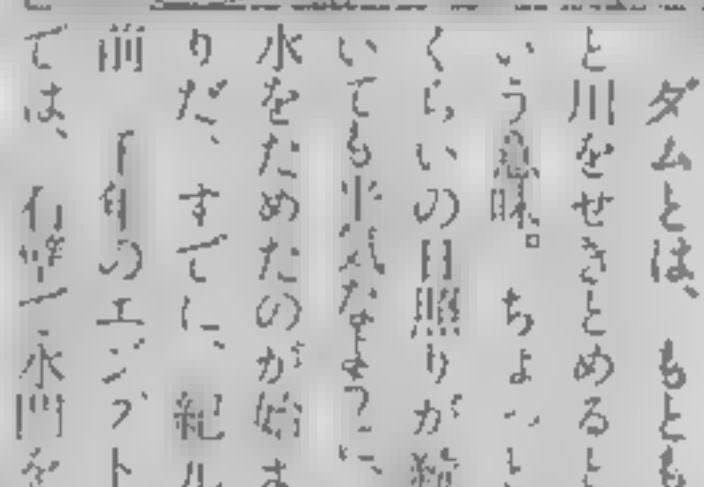 ダムとは、もとも
と川をせきとめると
いう意味。ちょっと
くらいの日照りが続
いても平気なように、
水をためたのが始ま
りだ。すでに、紀元
前　千年のエジプト
では、石で　水門を